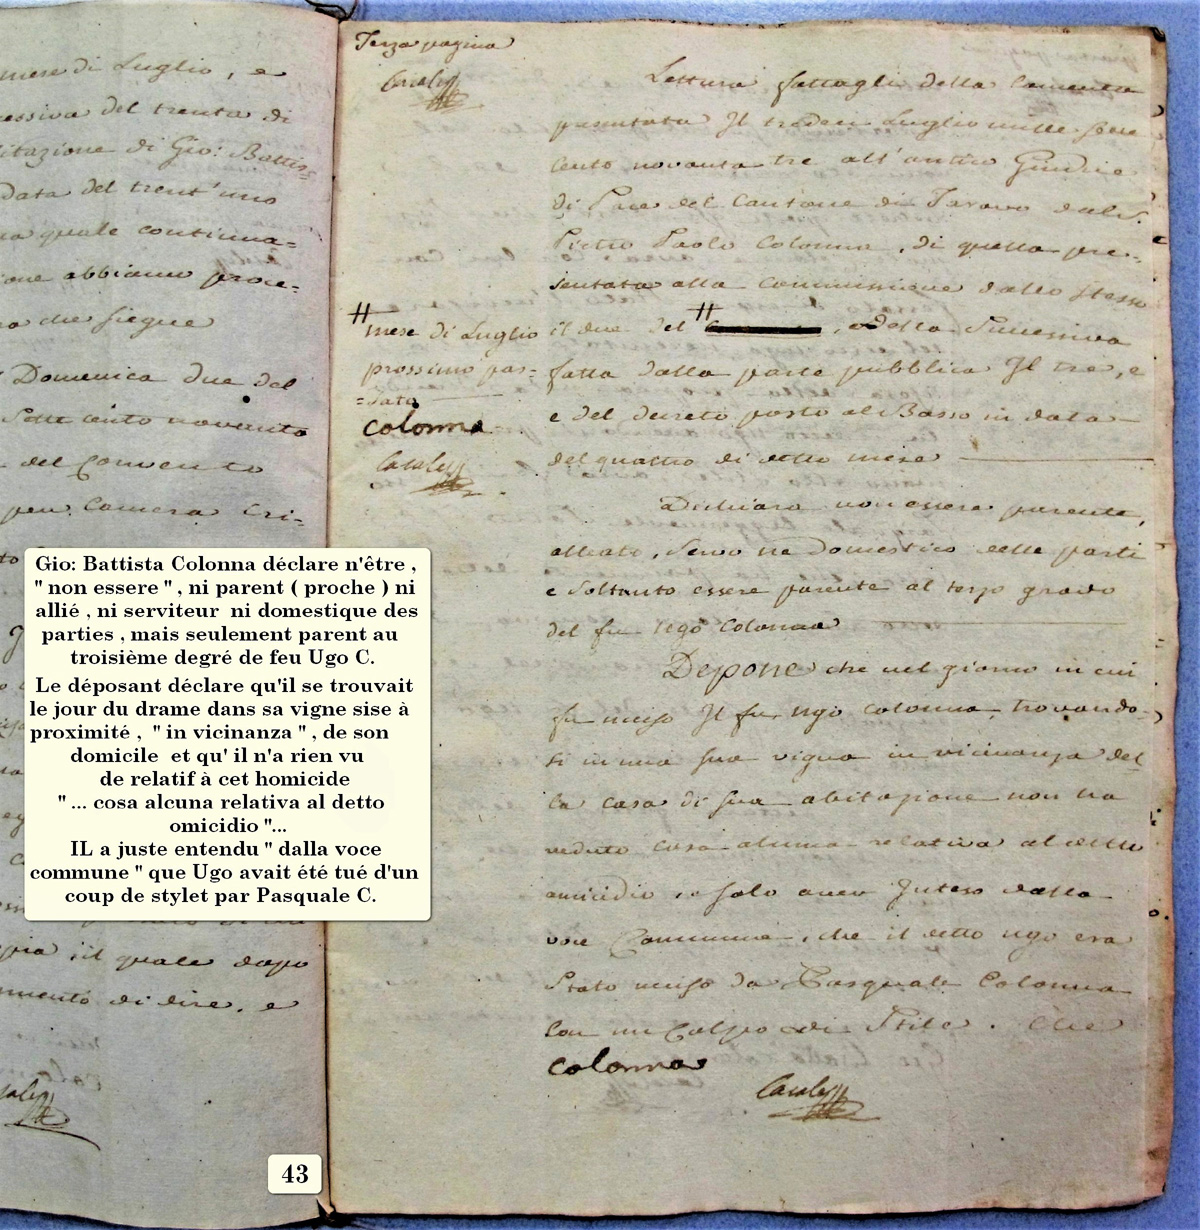 mese di Luglio, e
cessiva del trenta di
citazione di Gio: Battis=
Data del trent'uno
la quale continua=
ione abbiamo proce=
che siegue
Domenica due del
Sette cento novanta
del Convento
Camera Cri=
il quale dopo
di dire, e
Terza pagina
Casalta
Lettura fattagli della Lamenta
presentata Il tredeci Luglio mille sette
cento novanta tre all'antico Giudice
di Pace del Cantone di Taravo dal S.
Pietro Paolo Colonna, di quella pre=
sentata alla Commissione dallo stesso
il due del # , e della Successiva
fatta dalla parte pubblica Il tre, e
e del decreto posto al Basso in data
del quattro di detto mese
#
mese di Luglio
prossimo pas=
=sato
Colonna
Dichiara non essere parente,
alleato, Servo ne Domestico delle parti
e Soltanto essere parente al terzo grado
del fu Ugo Colonna
Depone che nel giorno in cui
fu ucciso Il fu Ugo Colonna, trovando=
si in una sua vigna in vicinanza del=
la casa di sua abitazione non ha
veduto cosa alcuna relativa al detto
omicidio, e solo aver Inteso dalla
voce Commune, che il detto Ugo era
Stato ucciso da Pasquale Colonna
con un Colpo di Stile. Che
Colonna
Gio: Battista Colonna déclare n'être ,
" non essere " , ni parent ( proche ) ni
allié , ni serviteur ni domestique des
parties , mais seulement parent au
troisième degré de feu Ugo C.
Le déposant déclare qu'il se trouvait
le jour du drame dans sa vigne sise à
proximité , " in vicinanza " , de son
domicile et qu' il n'a rien vu
de relatif à cet homicide
" ... cosa alcuna relativa al detto
omicidio "...
IL a juste entendu " dalla voce
commune " que Ugo avait été tué d'un
coup de stylet par Pasquale C.
43